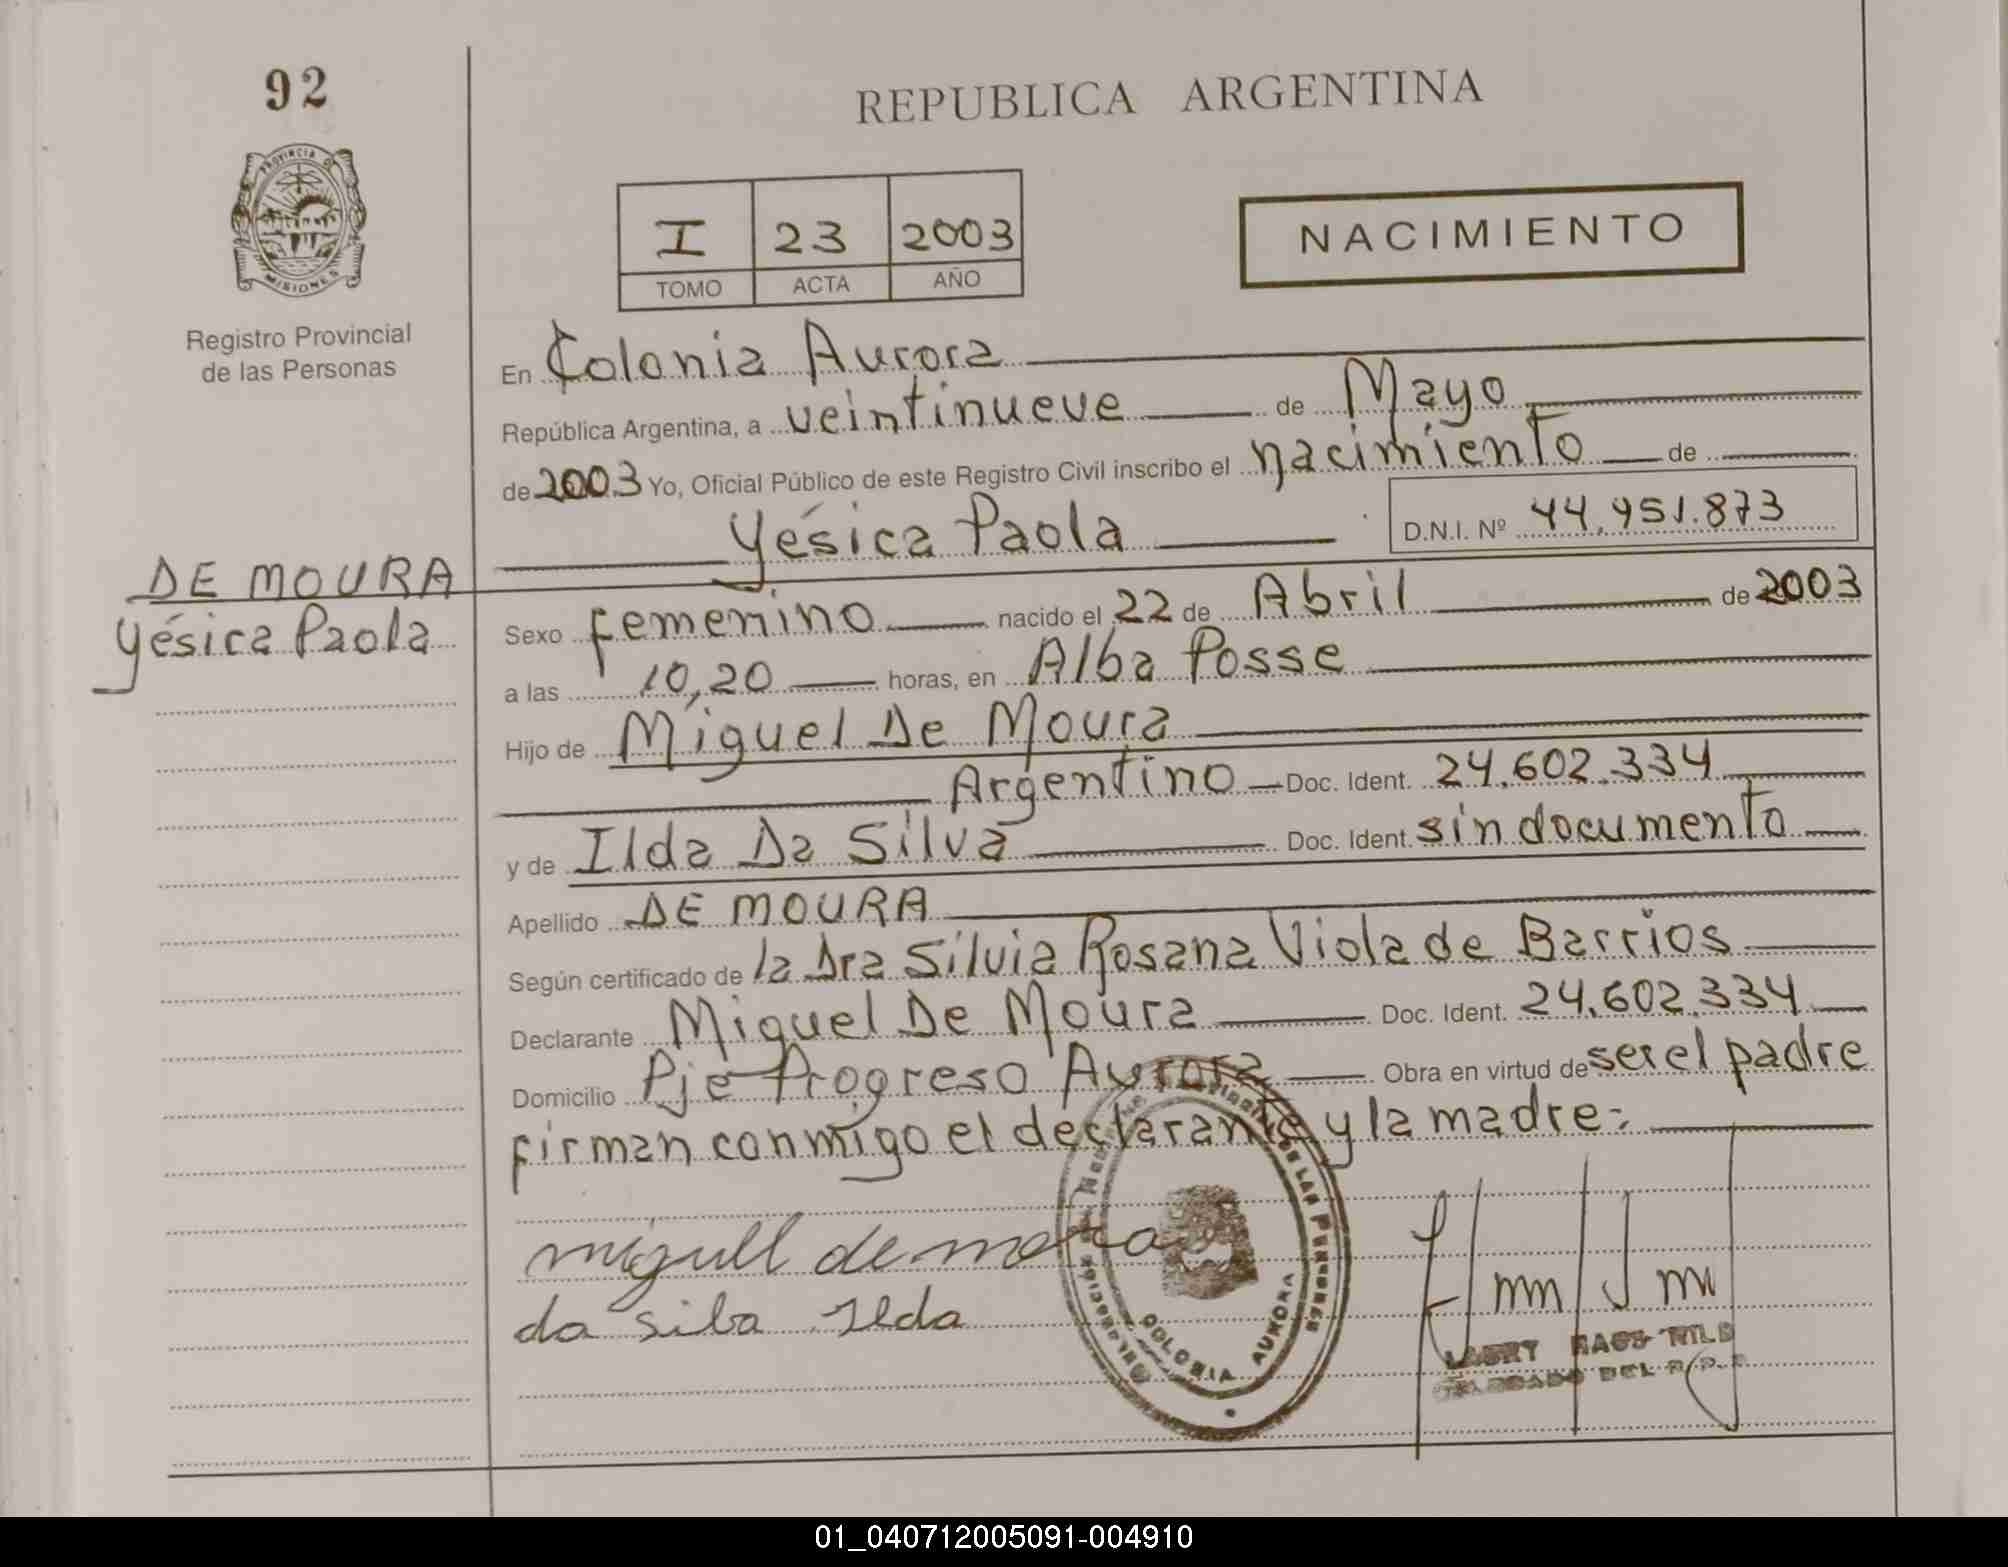 92
PROVINCIA DE
MISIONES
Registro Provincial
de las Personas
DE MOURA
Yésica Paola
REPUBLICA ARGENTINA
I 23 2003
TOMO ACTA AÑO
NACIMIENTO
En Colonia Aurora
República Argentina, a veintinueve de Mayo
de 2003 Yo, Oficial Público de este Registro Civil inscribo el nacimiento de
Yésica Paola D.N.I. Nº 44.951.873
Sexo femenino nacido el 22 de Abril de 2003
a las 10,20 horas, en Alba Posse
Hijo de Miguel De Moura
Argentino Doc. Ident. 24.602.334
y de Ilda Da Silva Doc. Ident. sin documento
Apellido DE MOURA
Según certificado de la Dra Silvia Rosana Viola de Barrios
Declarante Miguel De Moura Doc. Ident. 24.602.334
Domicilio Pje Progreso Aurora Obra en virtud de ser el padre
firman conmigo el declarante y la madre:
miguell de mora
da silba Ilda
DE LAS PERSONAS
COLONIA AURORA
DELEGADO DEL R.P.P.
01_040712005091-004910